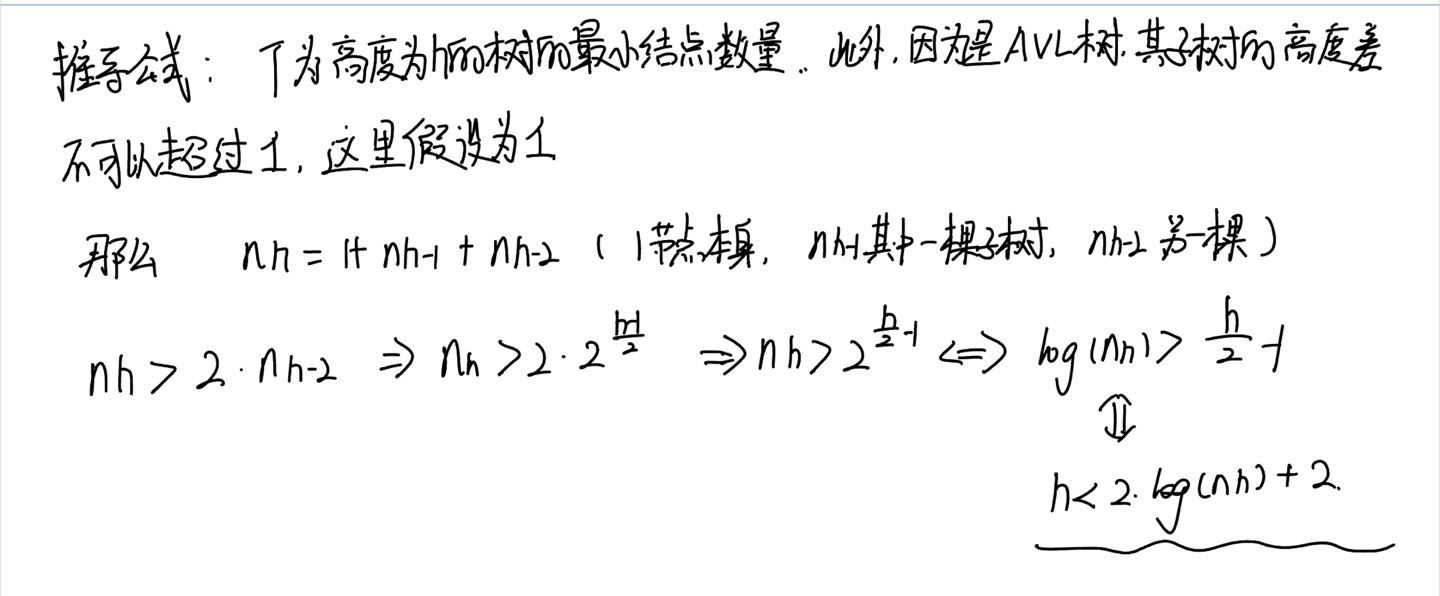 推导公式: T为高度为h的树的最小结点数量. 此外, 因为是AVL树, 其子树的高度差
不可以超过1, 这里假设为1
那么 nh = 1+ nh-1 + nh-2 ( 1节点本身, nh-1其中一棵子树, nh-2 另一棵 )
nh > 2 · nh-2 ⇒ nh > 2 · 2^{\frac{h-1}{2}} ⇒ nh > 2^{\frac{h}{2}-1} ⇔ log(nh) > \frac{h}{2} -1
⇕
h < 2· log(nh) + 2.